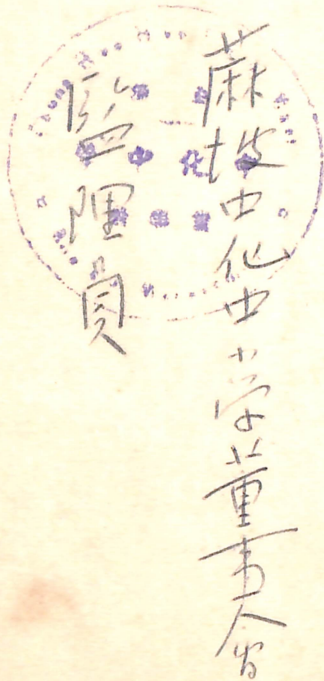 蔴坡中化中小学董事会
監理員